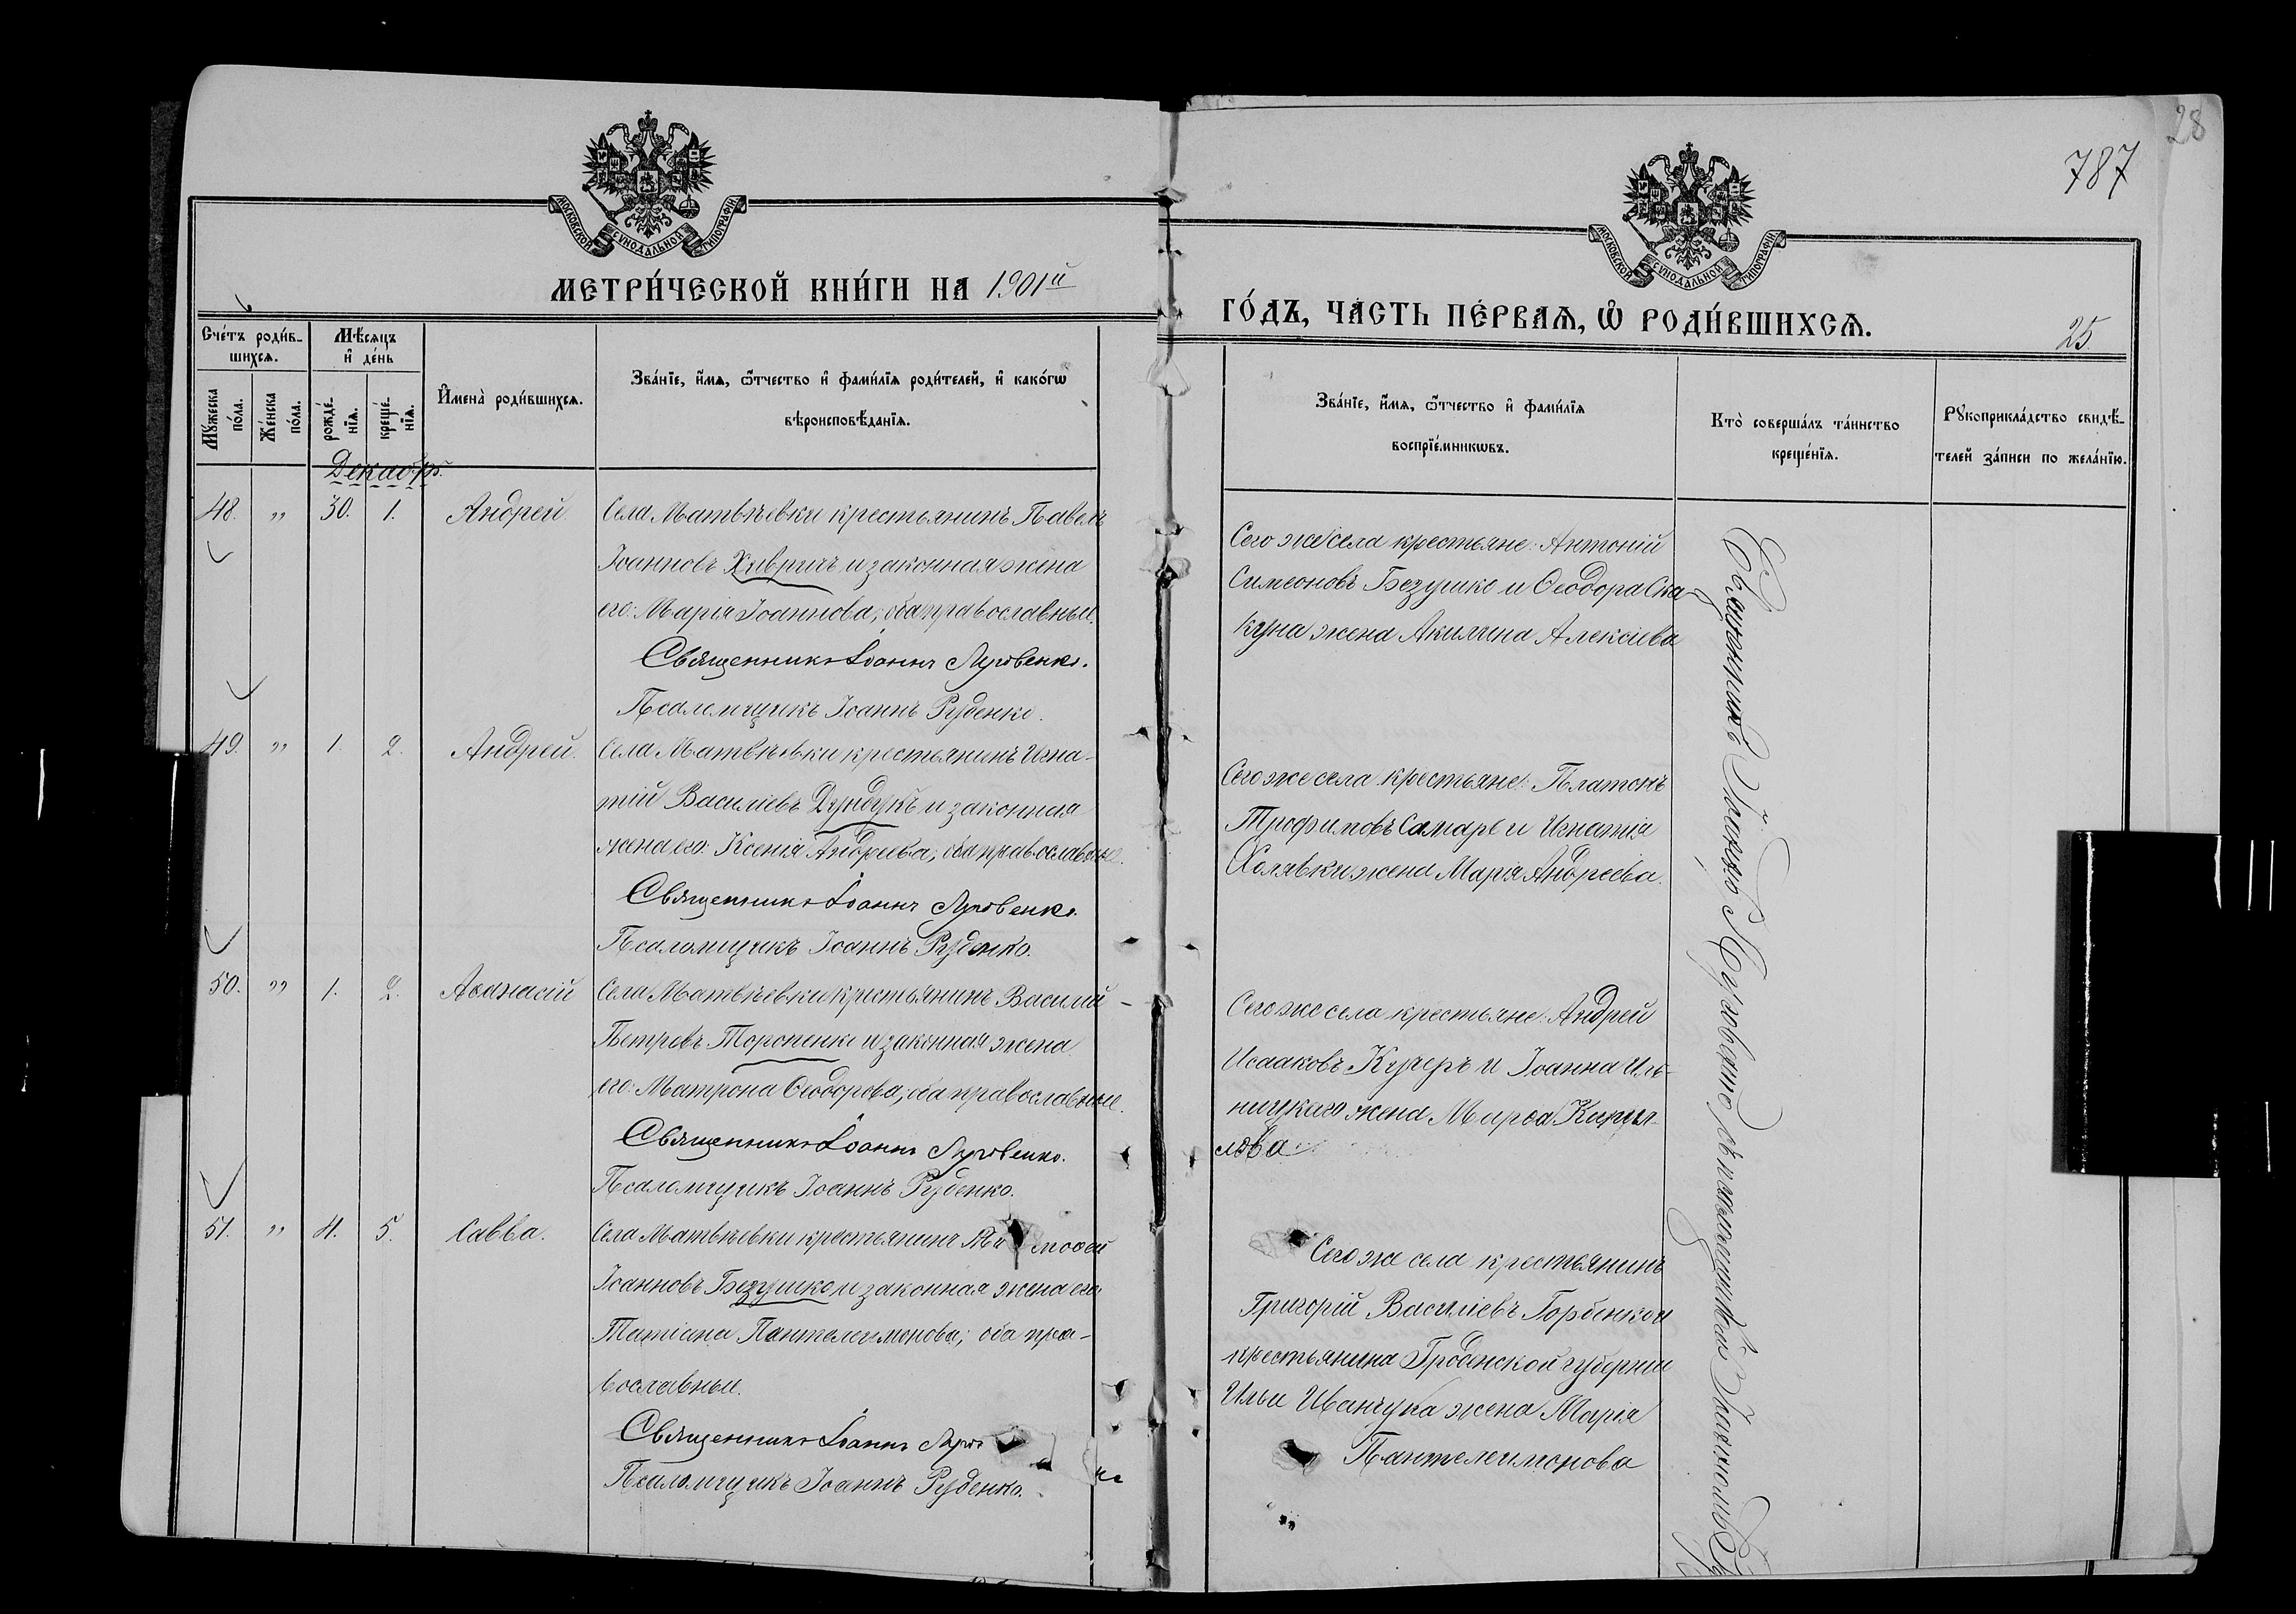 28
787
МОСКОВСКОЙ СѴНОДАЛЬНОЙ ТИПОГРАФІИ
МОСКОВСКОЙ СѴНОДАЛЬНОЙ ТИПОГРАФІИ
МЕТРИ́ЧЕСКОЙ КНИ́ГИ НА 1901й
ГО́ДЪ, ЧА́СТЬ ПЕ́РВАѦ, Ѡ҆ РОДИ́ВШИХСѦ.
25.
Сче́тъ роди́в-
шихсѧ.
Мꙋ́жеска по́ла.
Же́нска по́ла.
Мѣ́сѧцъ
и҆ де́нь
рожде́-
нїѧ.
креще́-
нїѧ.
И҆мена̀ роди́вшихсѧ.
Зва́нїе, и҆́мѧ, ѻ҆́тчество и҆ фами́лїѧ роди́телей, и҆ како́гѡ
вѣроисповѣ́данїѧ.
Зва́нїе, и҆́мѧ, ѻ҆́тчество и҆ фами́лїѧ
воспрїе́мникѡвъ.
Кто̀ соверша́лъ та́инство
креще́нїѧ.
Рꙋкоприкла́дство свидѣ́-
телей за́писи по жела́нїю.
Декабрь.
48. " 30. 1. Андрей.
Села Матвѣевки крестьянинъ Павелъ
Іоанновъ Хивричъ и законная жена
его: Марія Іоаннова; оба православные.
Священникъ Іоаннъ Луговенко.
Псаломщикъ Іоаннъ Руденко.
Сего же села крестьяне: Антоній
Симеоновъ Безушко и Ѳеодора Ска-
куна жена Акилина Алексіева
49. " 1. 2. Андрей.
Села Матвѣевки крестьянинъ Игна-
тій Василіевъ Дундукъ и законная
жена его: Ксенія Андреева; оба православные.
Священникъ Іоаннъ Луговенко.
Псаломщикъ Іоаннъ Руденко.
Сего же села крестьяне: Платонъ
Трофимовъ Самарь и Игнатія
Холявки жена Марія Андреева.
50. " 1. 2. Аѳанасій
Села Матвѣевки крестьянинъ Василій
Петровъ Торопенко и законная жена
его: Матрона Ѳеодорова; оба православные.
Священникъ Іоаннъ Луговенко.
Псаломщикъ Іоаннъ Руденко.
Сего же села крестьяне: Андрей
Исааковъ Кучеръ и Іоанна Иль-
ницкаго жена Марѳа Кирил-
лова
51. " 4. 5. Савва.
Села Матвѣевки крестьянинъ Ти моѳей
Іоанновъ Безушко и законная жена его
Татіана Пантелеимонова; оба пра-
вославные.
Священникъ Іоаннъ Луго
Псаломщикъ Іоаннъ Руденко.
Сего же села крестьянинъ
Григорій Василіевъ Горбенко и
крестьянина Гродненской губерніи
Ильи Иванчука жена Марія
Пантелеимонова
Священникъ Іоаннъ Луговенко съ псаломщикомъ Іоанномъ